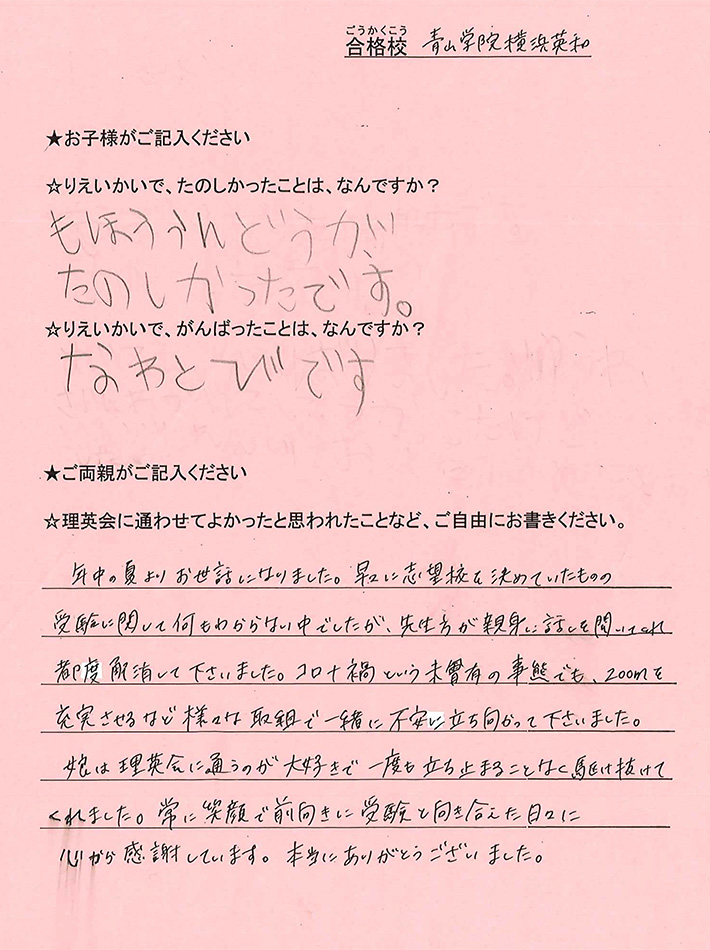 ごうかくこう
合格校 青山学院横浜英和
★お子様がご記入ください
☆りえいかいで、たのしかったことは、なんですか？
もほううんどうが、
たのしかったです。
☆りえいかいで、がんばったことは、なんですか？
なわとびです
★ご両親がご記入ください
☆理英会に通わせてよかったと思われたことなど、ご自由にお書きください。
年中の夏よりお世話になりました。早々に志望校を決めていたものの
受験に関して何もわからない中でしたが、先生方が親身に話しを聞いてくれ
都度解消して下さいました。コロナ禍という未曾有の事態でも、zoomを
充実させるなど様々な取組で一緒に不安に立ち向かって下さいました。
娘は理英会に通うのが大好きで一度も立ち止まることなく駆け抜けて
くれました。常に笑顔で前向きに受験と向き合えた日々に
心から感謝しています。本当にありがとうございました。